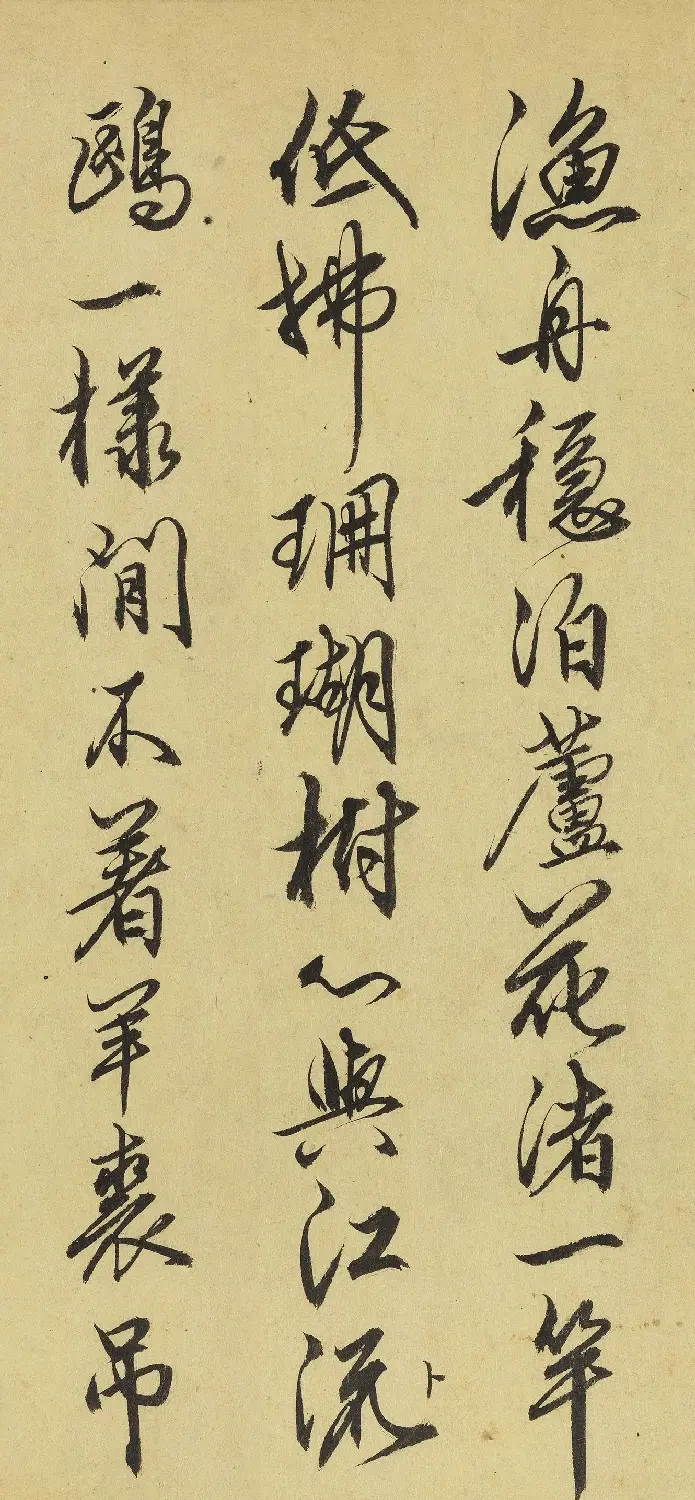 漁舟穩泊蘆花渚一竿
低拂珊瑚樹心與江流
鷗一樣閒不著羊裘吊